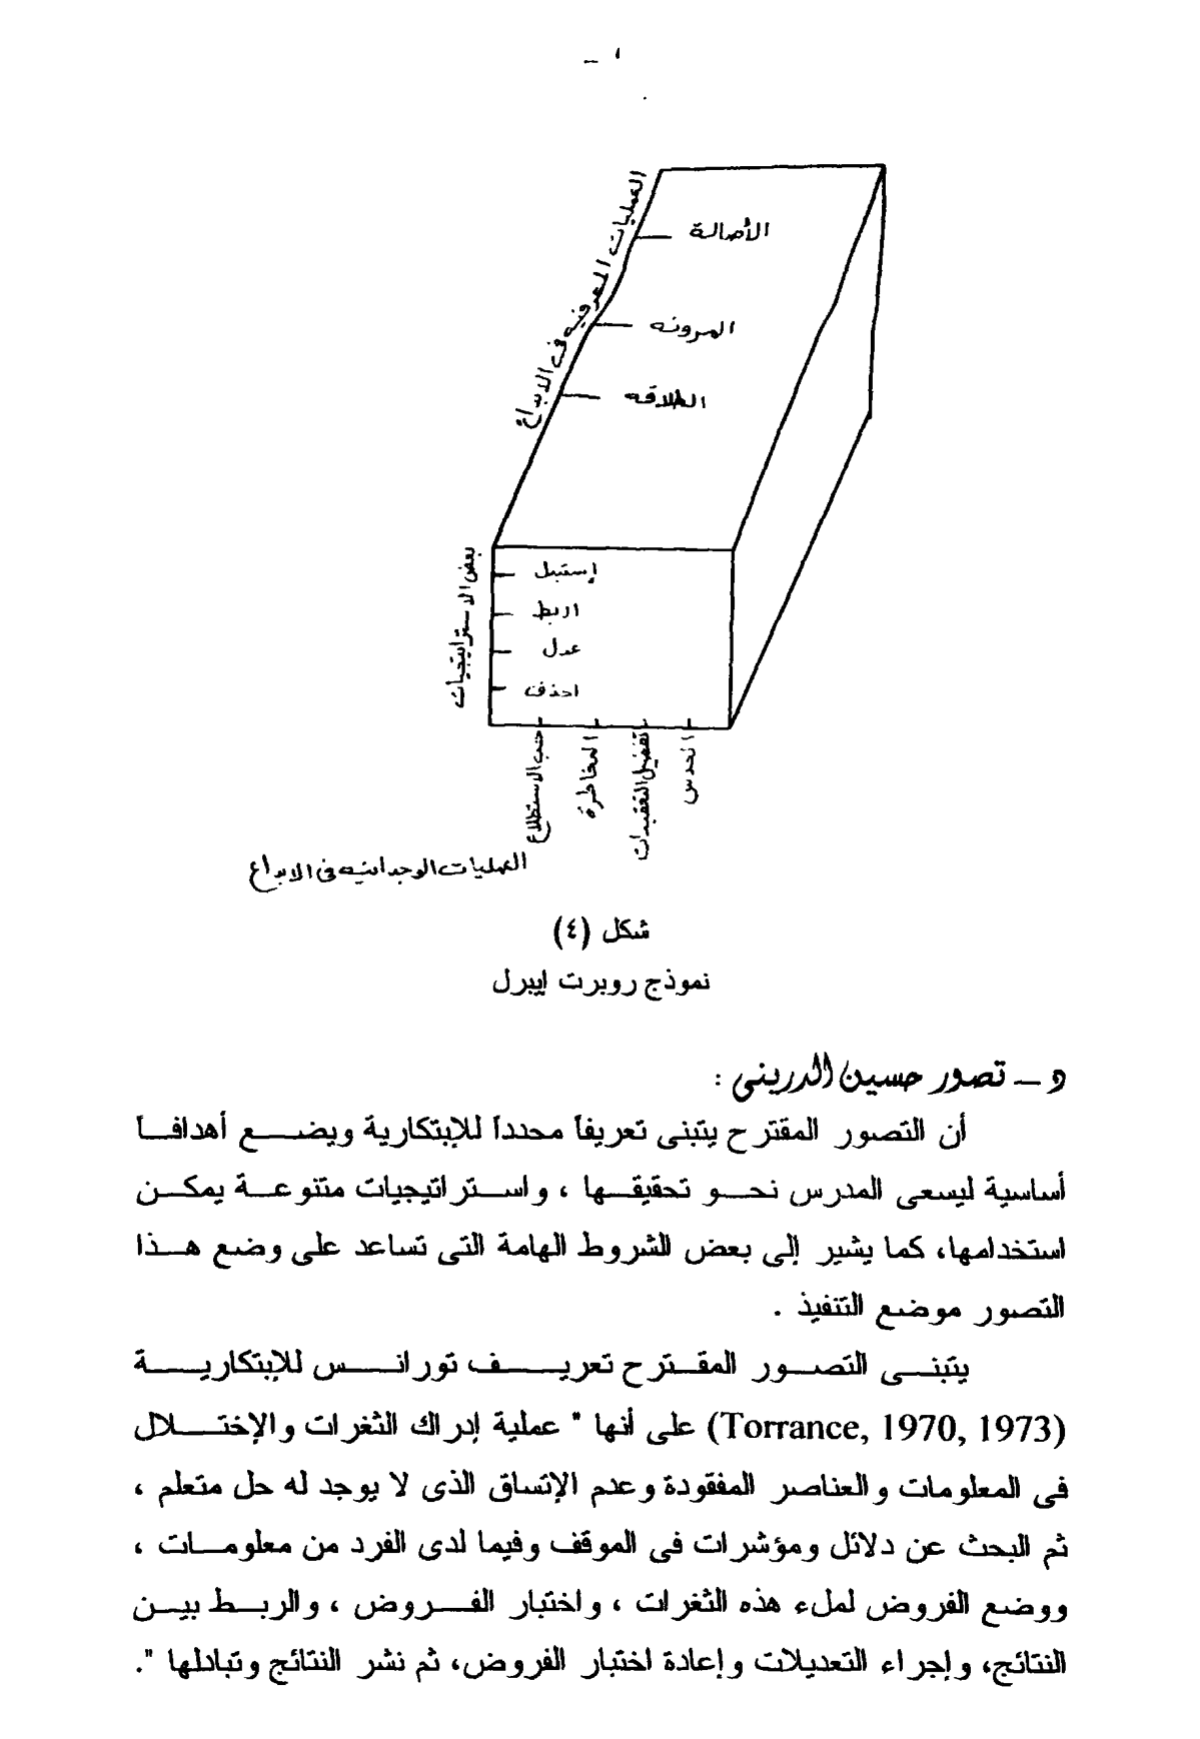 العمليات المعرفيه فى الابداع
الأصالة
المرونه
الطلاقه
بعض الاستراتيجيات
إستبدل
اربط
عدل
احذف
حب الاستطلاع
المخاطرة
تفضيل التعقيدات
الحدس
العمليات الوجدانيه فى الابداع
شكل (٤)
نموذج روبرت إيبرل
و – تصور حسين الدرينى :
أن التصور المقترح يتبنى تعريفاً محدداً للإبتكارية ويضع أهدافاً
أساسية ليسعى المدرس نحو تحقيقها ، واستراتيجيات متنوعة يمكن
استخدامها، كما يشير إلى بعض الشروط الهامة التى تساعد على وضع هذا
التصور موضع التنفيذ .
يتبنى التصور المقترح تعريف تورانس للإبتكارية
(Torrance, 1970, 1973) على أنها " عملية إدراك الثغرات والإختلال
فى المعلومات والعناصر المفقودة وعدم الإتساق الذى لا يوجد له حل متعلم ،
ثم البحث عن دلائل ومؤشرات فى الموقف وفيما لدى الفرد من معلومات ،
ووضع الفروض لملء هذه الثغرات ، واختبار الفروض ، والربط بين
النتائج، وإجراء التعديلات وإعادة اختبار الفروض، ثم نشر النتائج وتبادلها ".